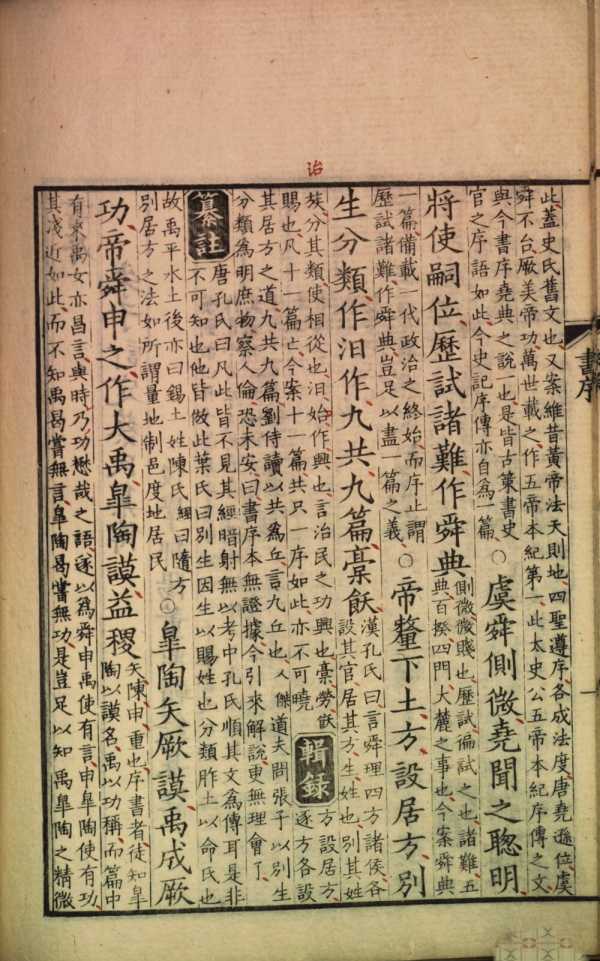 治
書序
此蓋史氏舊文也又案維昔黃帝法天則地四聖遵序各成法度唐堯遜位虞
舜不台厥美帝功萬世載之作五帝本紀第一此太史公五帝本紀序傳之文
與今書序堯典之說一也是皆古策書史
官之序語如此今史記序傳亦自爲一篇
○虞舜側微堯聞之聰明
將使嗣位歷試諸難作舜典
側微微賤也歷試徧試之也諸難五
典百揆四門大麓之事也今案舜典
一篇備載一代政治之終始而序止謂
歷試諸難作舜典豈足以盡一篇之義
○帝釐下土方設居方別
生分類作汩作九共九篇槀飫
漢孔氏曰言舜理四方諸侯各
設其官居其方生姓也別其姓
族分其類使相從也汩治作興也言治民之功興也槀勞飫
賜也凡十一篇亡今案十一篇共只一序如此亦不可曉
輯錄
方設居方
逐方各設
其居方之道九共九篇劉侍讀以共爲丘言九丘也人傑道夫問張子以別生
分類爲明庶物察人倫恐未安曰書序本無證據今引來解說更無理會了
纂註
唐孔氏曰凡此皆不見其經暗射無以考中孔氏順其文爲傳耳是非
不可知也他皆倣此葉氏曰別生因生以賜姓也分類胙土以命氏也
故禹平水土後亦曰錫土姓陳氏經曰隨方
別居方之法如所謂量地制邑度地居民
○皐陶矢厥謨禹成厥
功帝舜申之作大禹皐陶謨益稷
矢陳申重也序書者徒知皐
陶以謨名禹以功稱而篇中
有來禹女亦昌言與時乃功懋哉之語遂以爲舜申禹使有言申皐陶使有功
其淺近如此而不知禹曷嘗無言皐陶曷嘗無功是豈足以知禹皐陶之精微